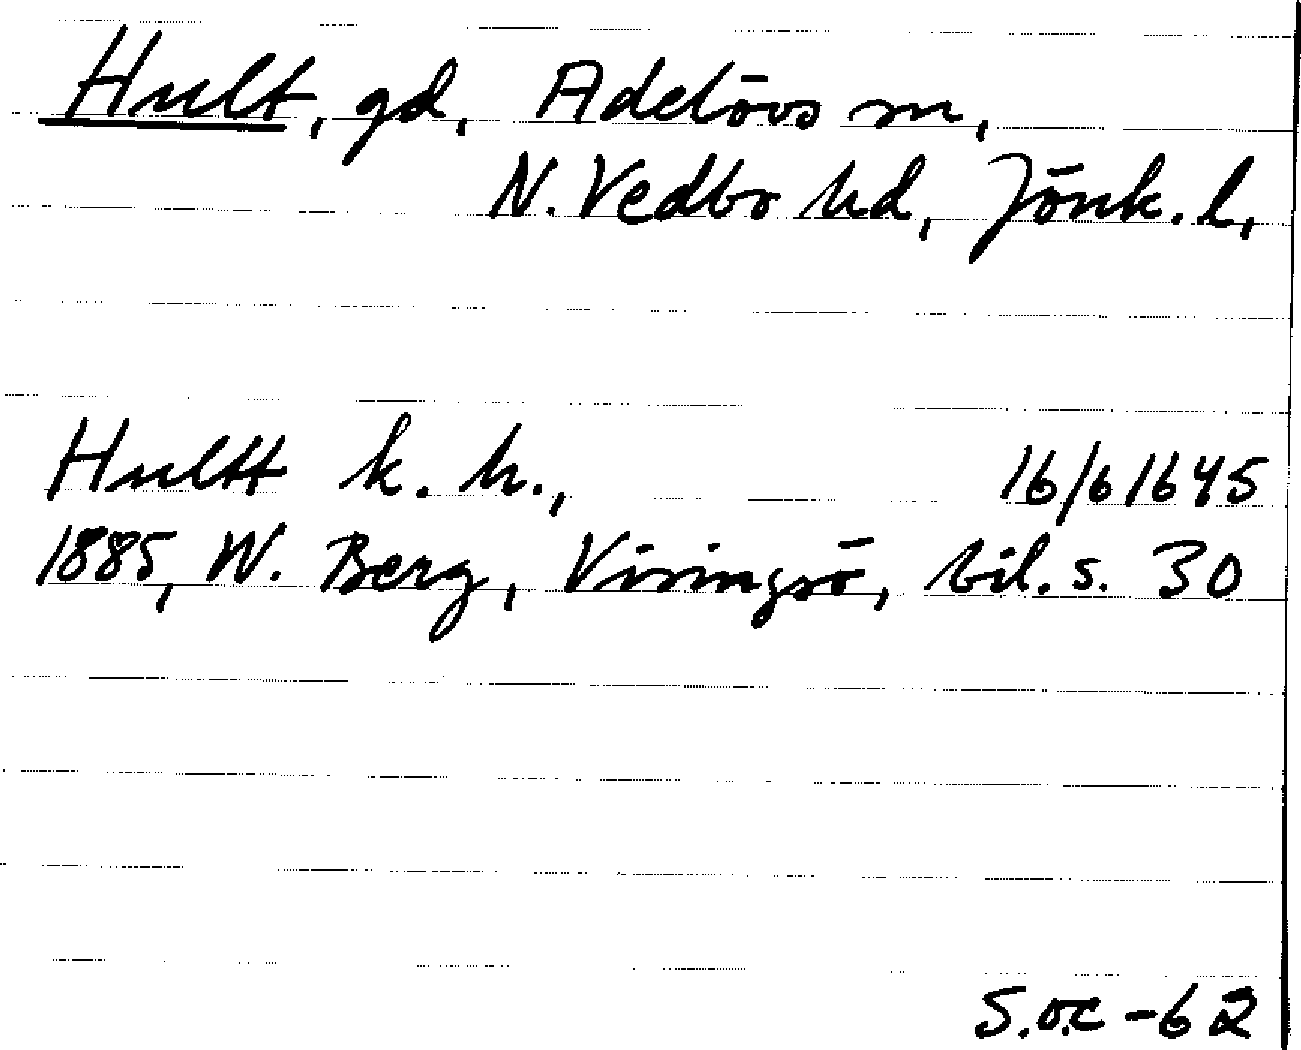 Hult, gd, Adelövs sn,
N. Vedbo hd, Jönk. l,
Hultt k. h., 16/6 1645
1885, W. Berg, Visingsö, bil. s. 30
S.O.C -62